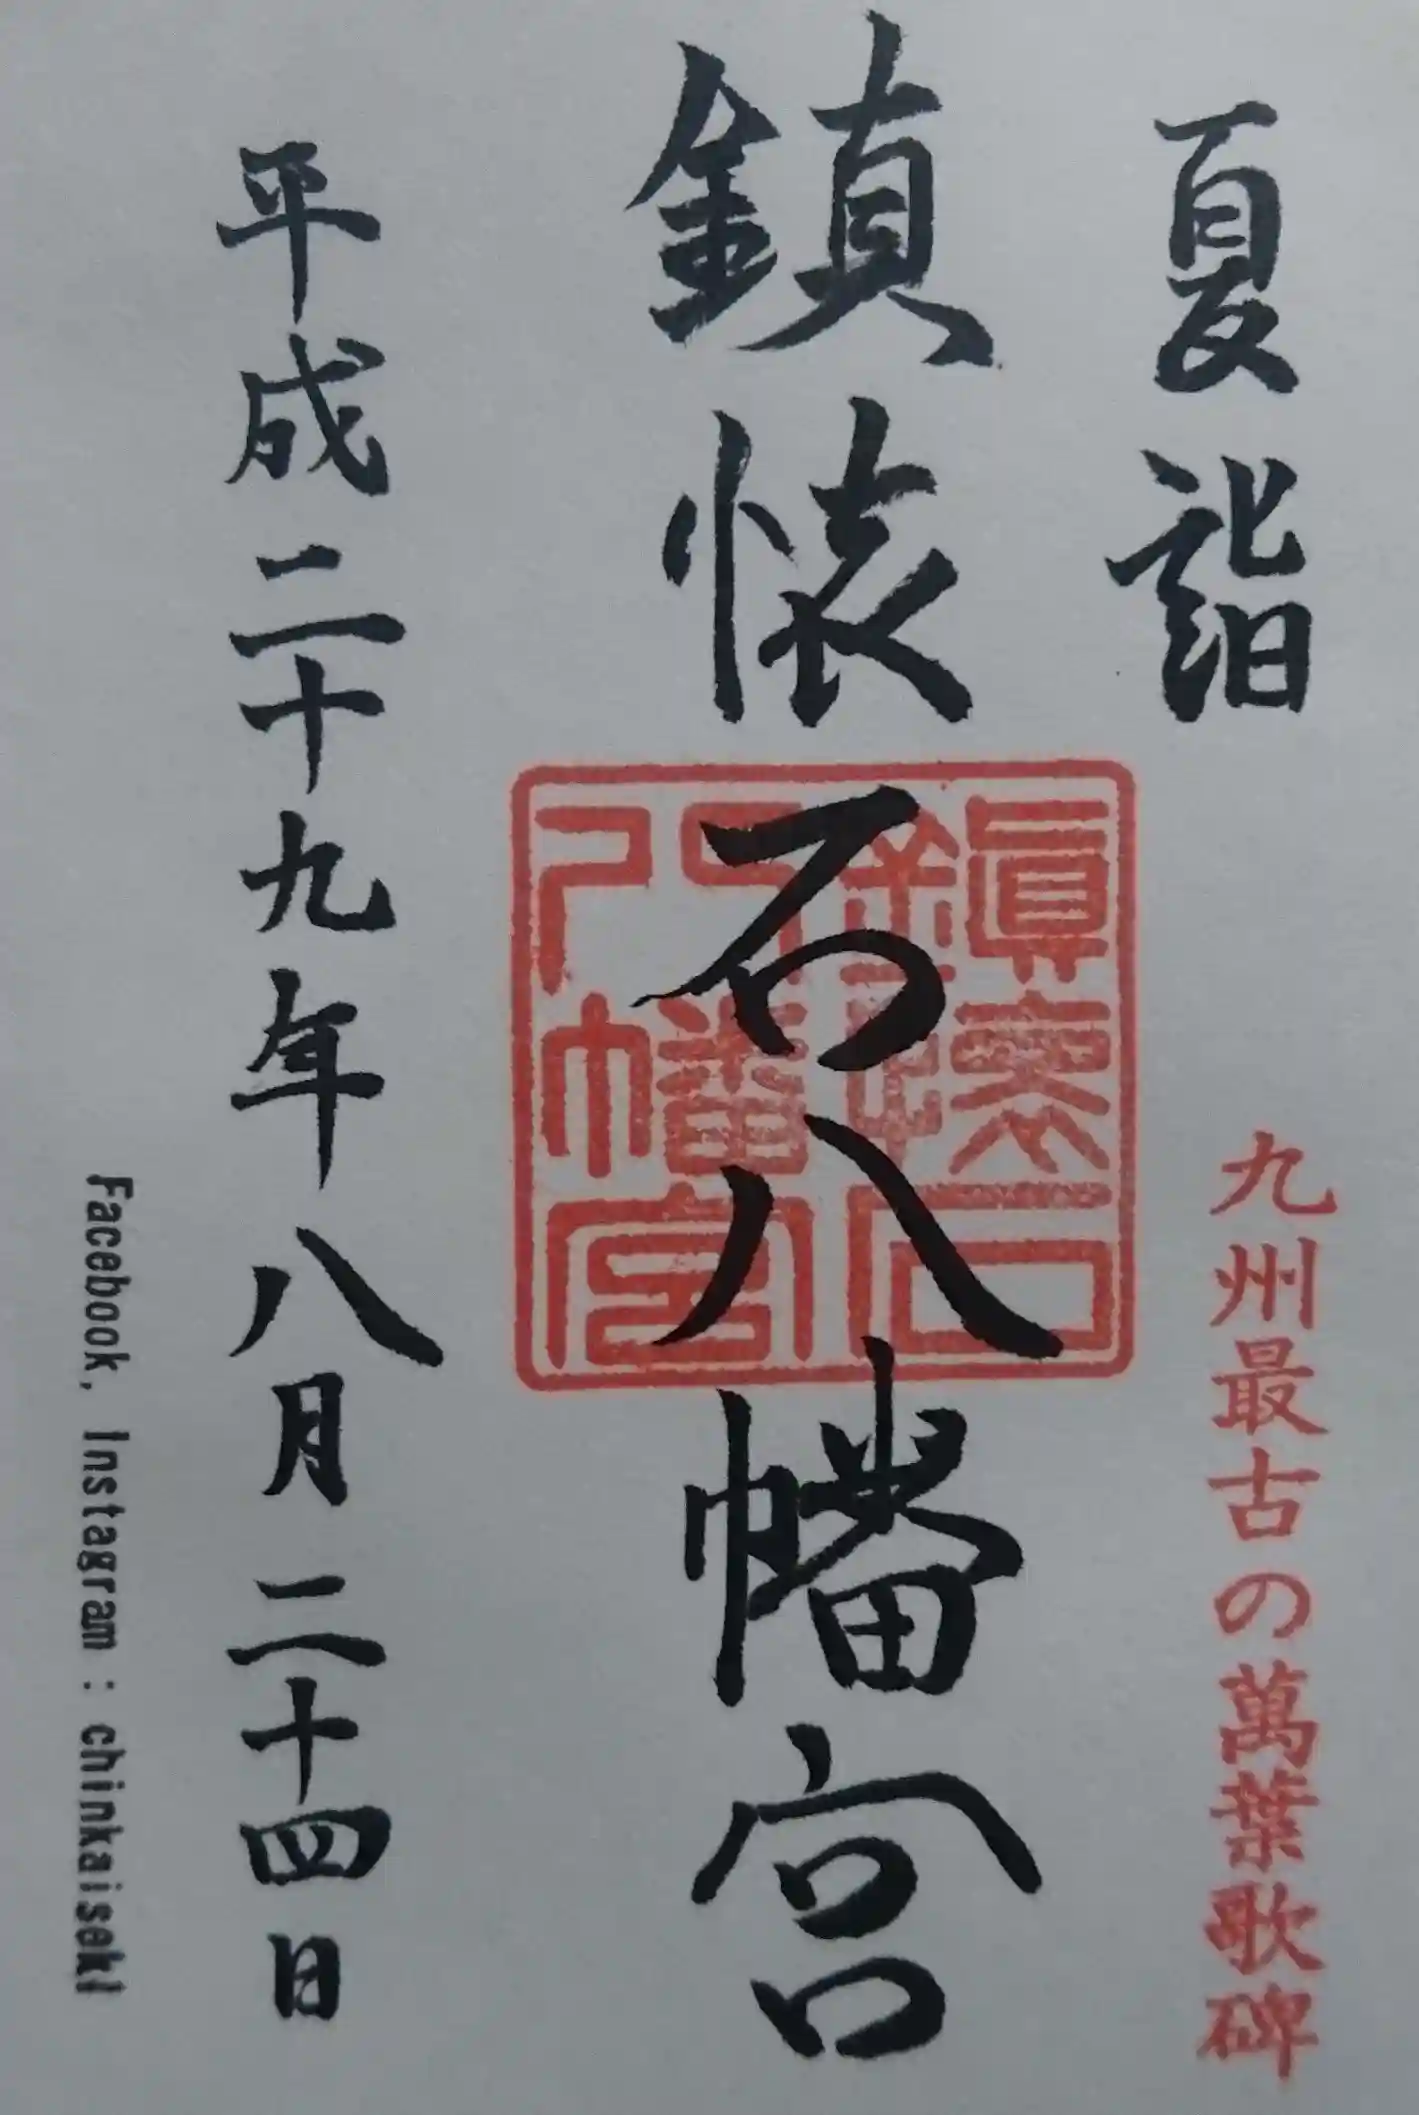 夏詣
九州最古の萬葉歌碑
鎮懐石八幡宮
鎭懷石
八幡宮
平成二十九年八月二十四日
Facebook, Instagram : chinkaiseki